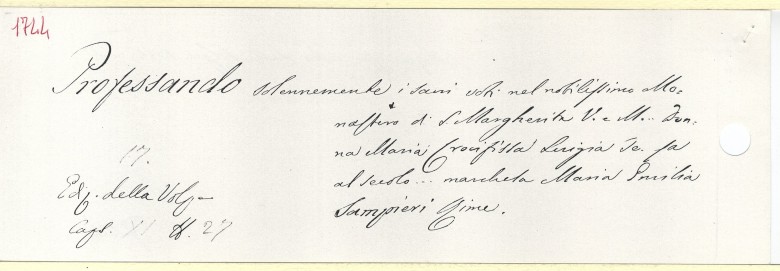 1744
Professando solennemente i sacri voti nel nobilissimo Mo=
nastero di S. Margherita V. e M... Don=
na Maria Crocifissa Luigia
al secolo... marchesa Maria Emilia
Sampieri Rime.
17.
Ediz. della Volpe
Caps. XI N. 27